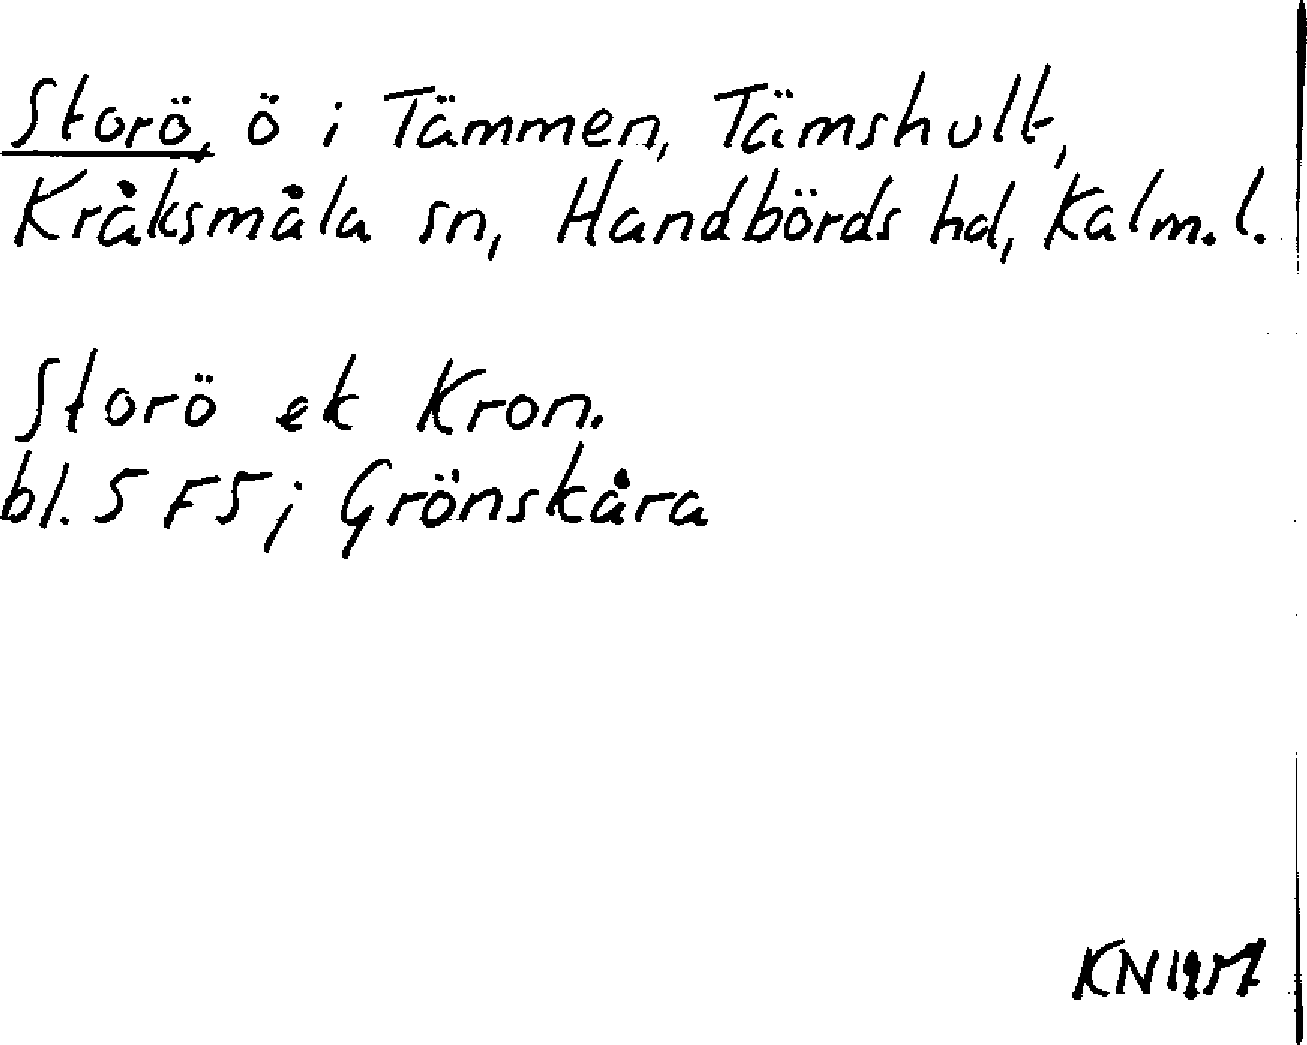 Storö, ö i Tämmen, Tämshult,
Kråksmåla sn, Handbörds hd, Kalm. l.
Storö ek Kron.
bl. 5 F5; Grönskåra
KN 1957